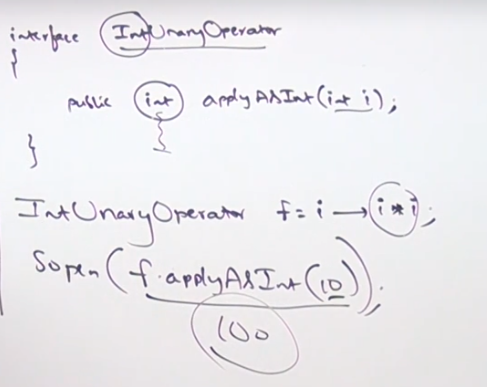 interface IntUnaryOperator
{
public int applyAsInt(int i);
}
IntUnaryOperator f = i → i * i;
Sopln(f.applyAsInt(10));
100